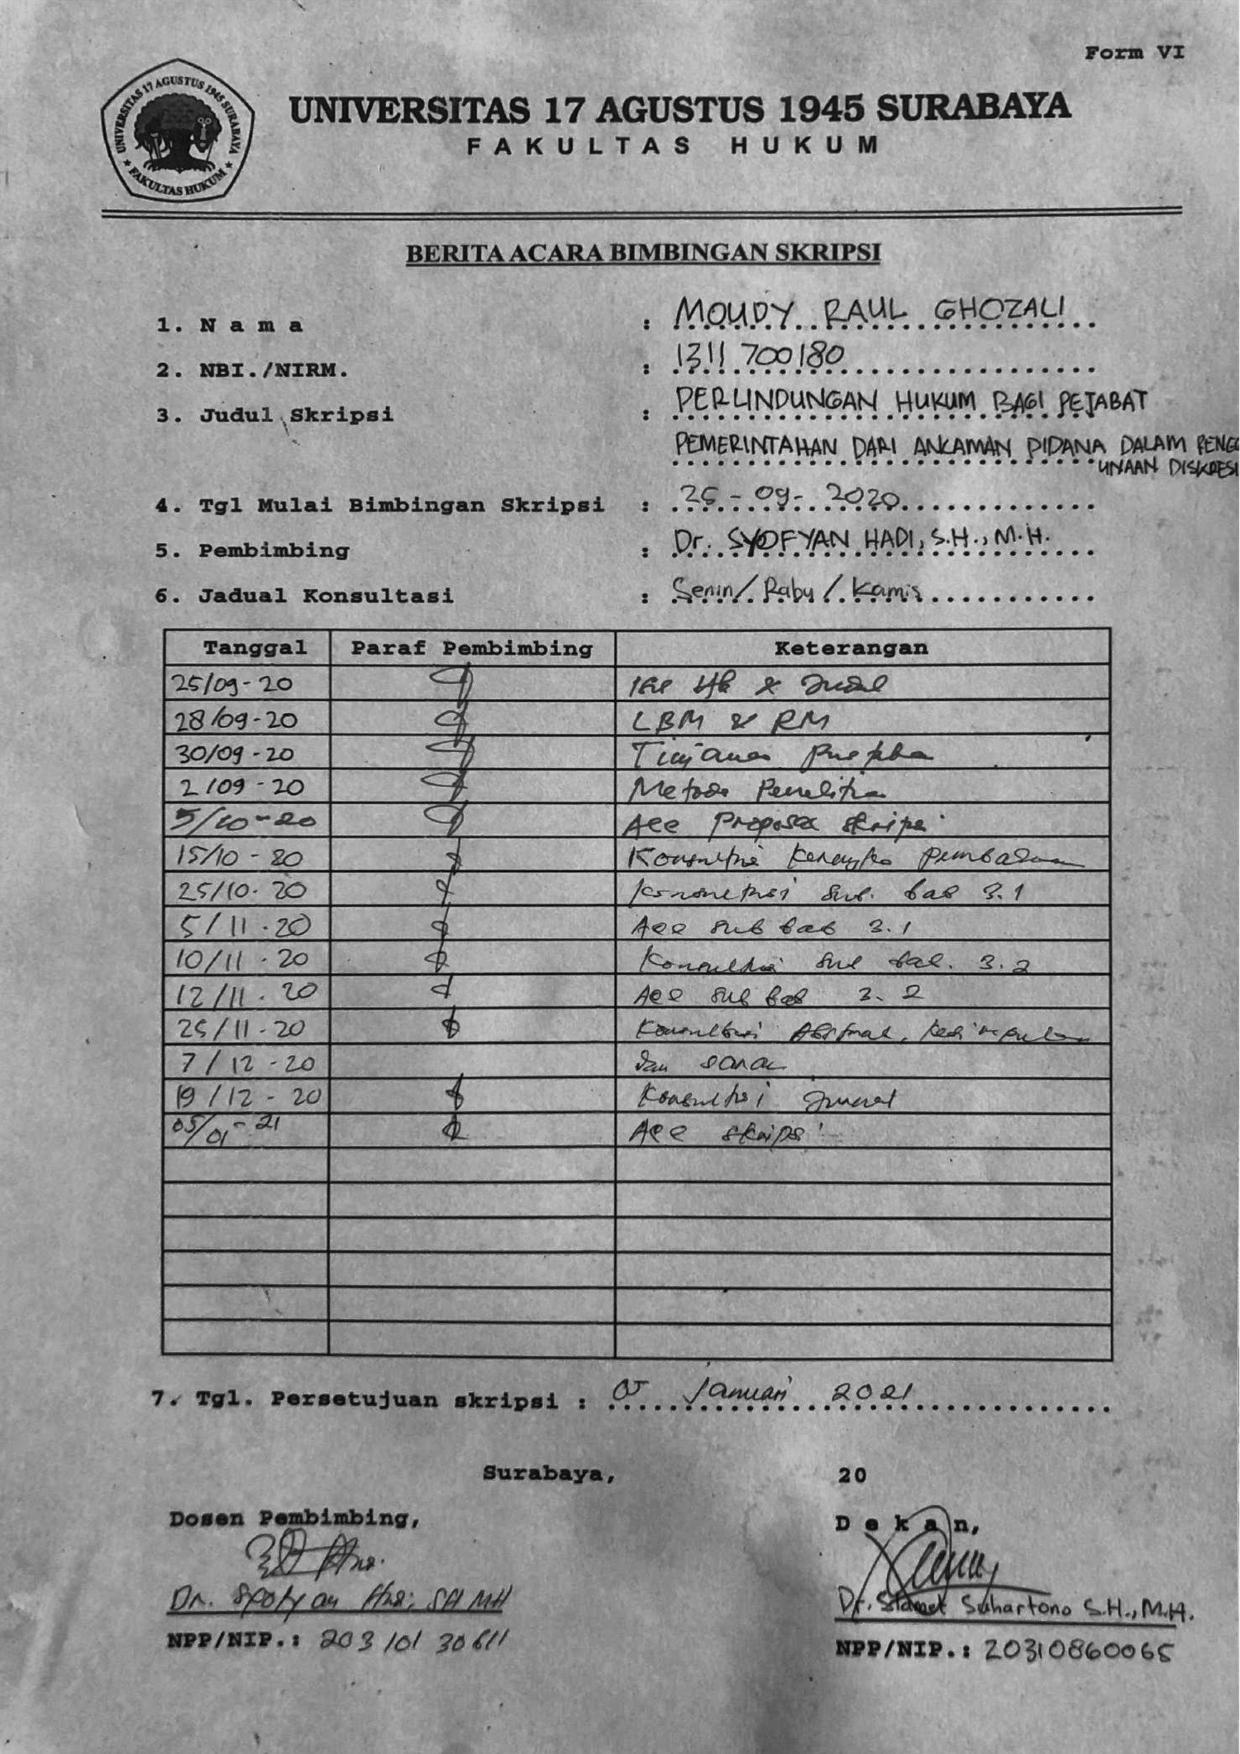 Form VI
UNIVERSITAS 17 AGUSTUS 1945 SURABAYA
FAKULTAS HUKUM
UNIVERSITAS 17 AGUSTUS 1945 SURABAYA
FAKULTAS HUKUM
BERITA ACARA BIMBINGAN SKRIPSI
1. Nama : MOUDY RAUL GHOZALI
2. NBI./NIRM. : 1311700180
3. Judul Skripsi : PERLINDUNGAN HUKUM BAGI PEJABAT
PEMERINTAHAN DARI ANCAMAN PIDANA DALAM PENGG
UNAAN DISKRESI
4. Tgl Mulai Bimbingan Skripsi : 25-09-2020
5. Pembimbing : Dr. SYOFYAN HADI, S.H., M.H.
6. Jadual Konsultasi : Senin/Rabu/Kamis
Tanggal Paraf Pembimbing Keterangan
25/09-20
28/09-20 LBM & RM
30/09-20
2/09-20 Metode Penelitian
5/10-20 Acc Proposal skripsi
15/10-20 Konsultasi Kerangka Pembahasan
25/10-20 Konsultasi sub bab 3.1
5/11-20 Acc sub bab 3.1
10/11-20 Konsultasi sub bab. 3.2
12/11-20 Acc sub bab 3.2
25/11-20 Konsultasi Abstrak, kesimpulan
7/12-20 dan saran
19/12-20 Konsultasi Jurnal
05/01-21 Acc skripsi
7. Tgl. Persetujuan skripsi : 05 Januari 2021
Surabaya, 20
Dosen Pembimbing, Dekan,
Dr. Syofyan Hadi, SH MH Dr. Slamet Suhartono S.H., M.H.
NPP/NIP.: 203 101 30611 NPP/NIP.: 20310860065